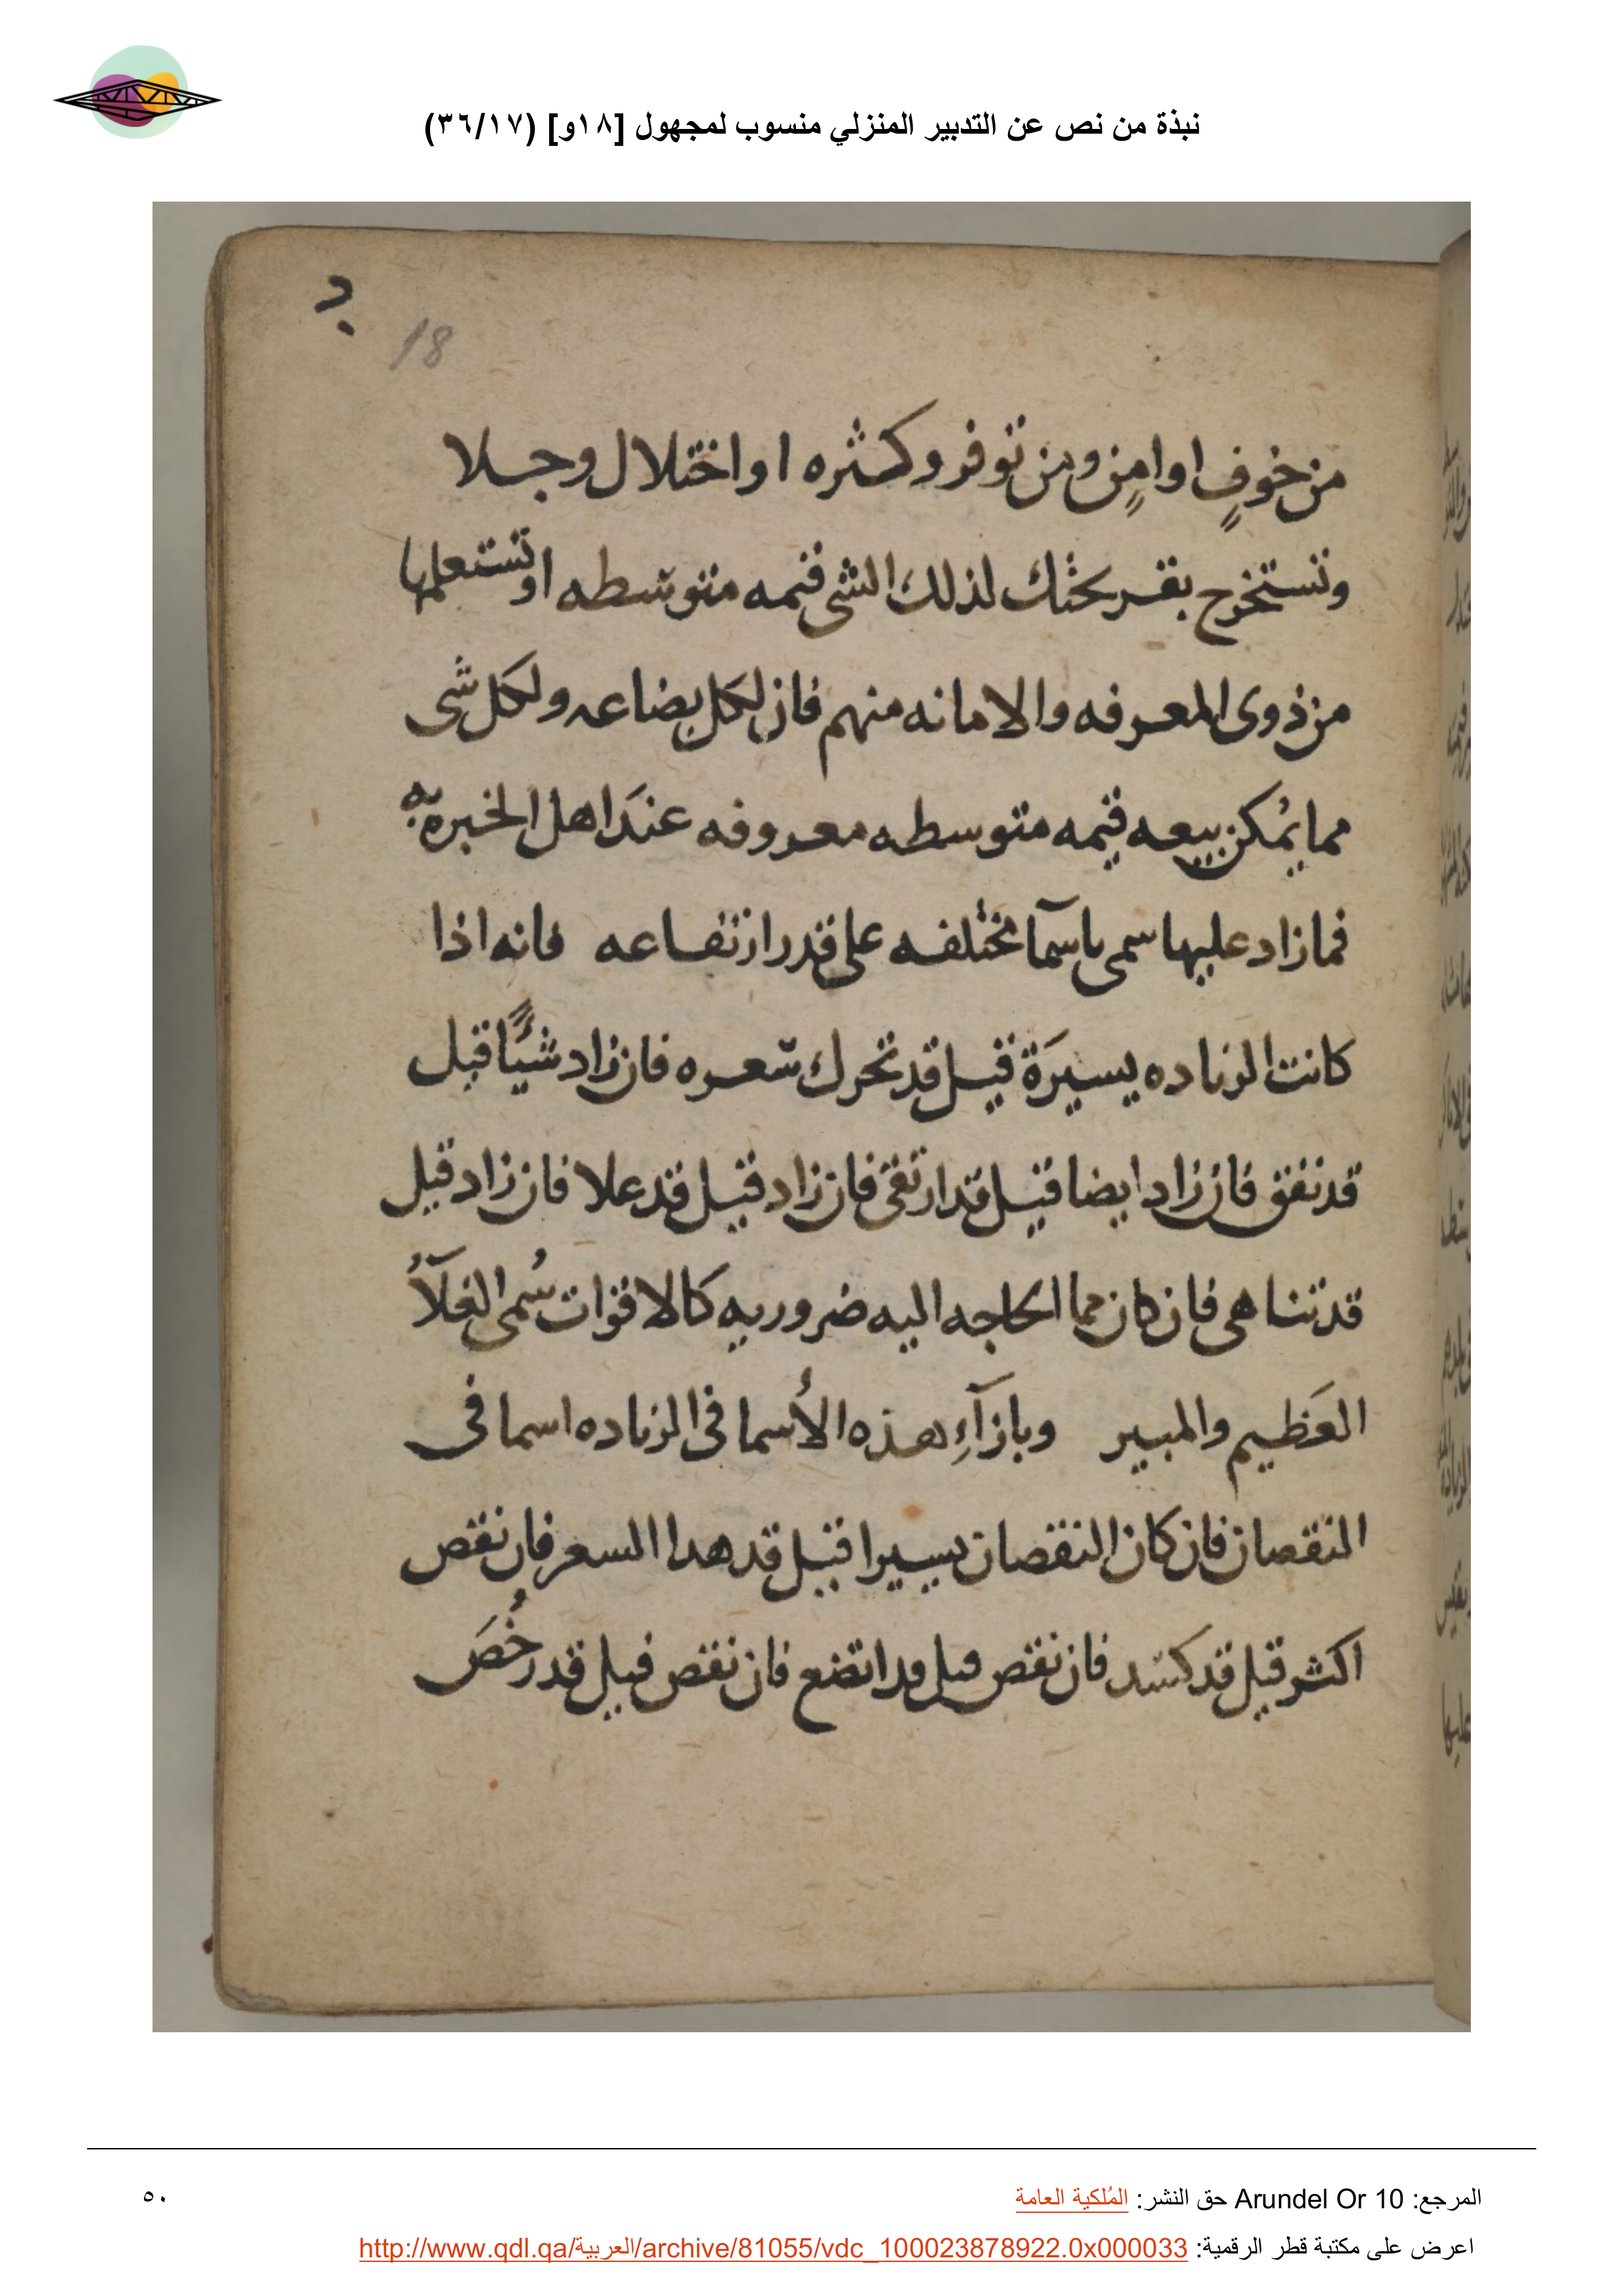 نبذة من نص عن التدبير المنزلي منسوب لمجهول [١٨و] (٣٦/١٧)
18
من خوفٍ او امنٍ ومن توفر وكثره او اختلال وجلا
وتستخرج بقريحتك لذلك الشى قيمه متوسطه او تستعلمها
من ذوى المعرفه والامانه منهم فان لكل بضاعه ولكل شى
مما يمُكن بيعه قيمه متوسطه معروفه عندَ اهل الخبرة به
فما زاد عليها سمى باسمآ مختلفه على قدر ارتفاعه فانه اذا
كانت الزياده يسيرَة قيل قد تحرك سعره فان زاد شيًا قيل
قد نفق فان زاد ايضا قيل قد ارتقى فان زاد قيل قد علا فان زاد قيل
قد تناهى فان كان مما الحاجه اليه ضروريه كالاقوات سُمى الغلآُ
العَظيم والمبير وبازآءِ هذه الأسما فى الزياده اسما فى
النقصان فان كان النقصان يسيرا قيل قد هدا السعر فان نقص
اكثر قيل قد كسد فان نقص قيل قد اتضع فان نقص قيل قد رخُصَ
المرجع: Arundel Or 10 حق النشر: المُلكية العامة
٥٠
اعرض على مكتبة قطر الرقمية: http://www.qdl.qa/العربية/archive/81055/vdc_100023878922.0x000033